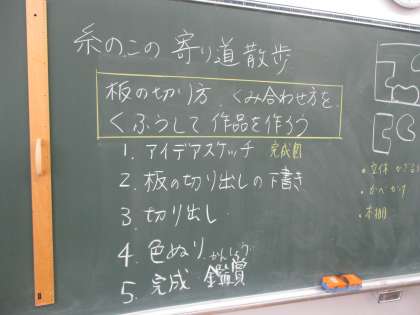 糸のこの寄り道散歩
板の切り方、くみ合わせ方を
くふうして作品を作ろう
1. アイデアスケッチ 完成図
2. 板の切り出しの下書き
3. 切り出し
4. 色ぬり
かんしょう
5. 完成 鑑賞
・立体
・かべかけ
・本棚